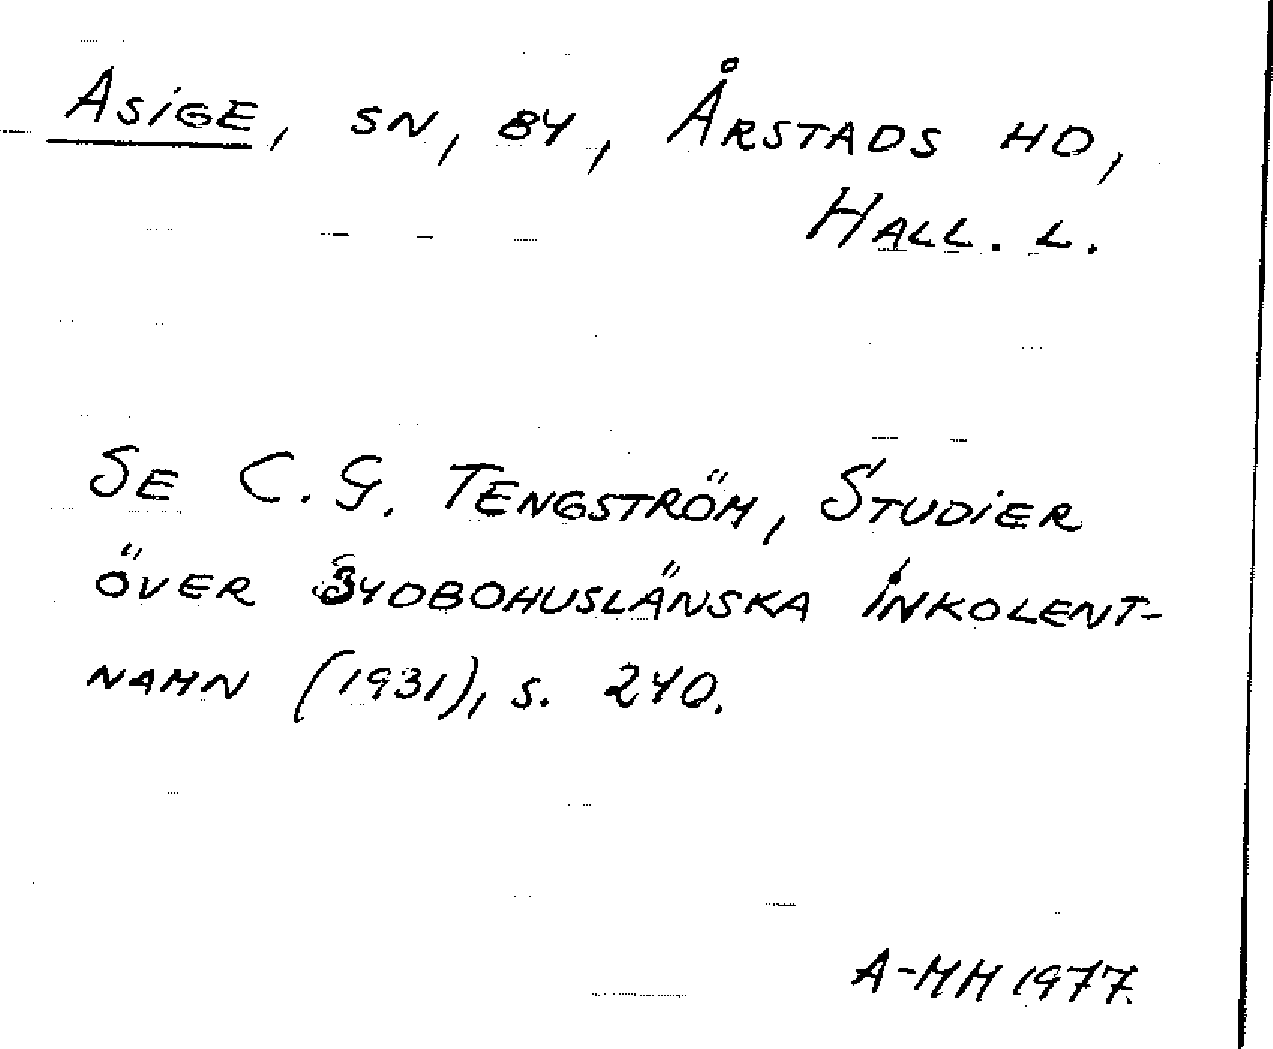 ASIGE, SN, BY, ÅRSTADS HD,
HALL. L.
SE C. G. TENGSTRÖM, STUDIER
ÖVER SYDBOHUSLÄNSKA INKOLENT-
NAMN (1931), S. 240.
A-MM 1977.